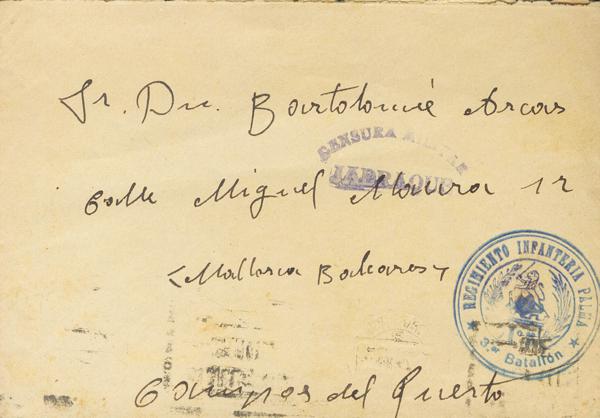 Sr. Dn. Bartolomé Arcas
CENSURA MILITAR
JADRAQUE
Calle Miguel Maura 12
<Mallorca Baleares>
REGIMIENTO INFANTERIA PALMA
3.er Batallón
Campos del Puerto